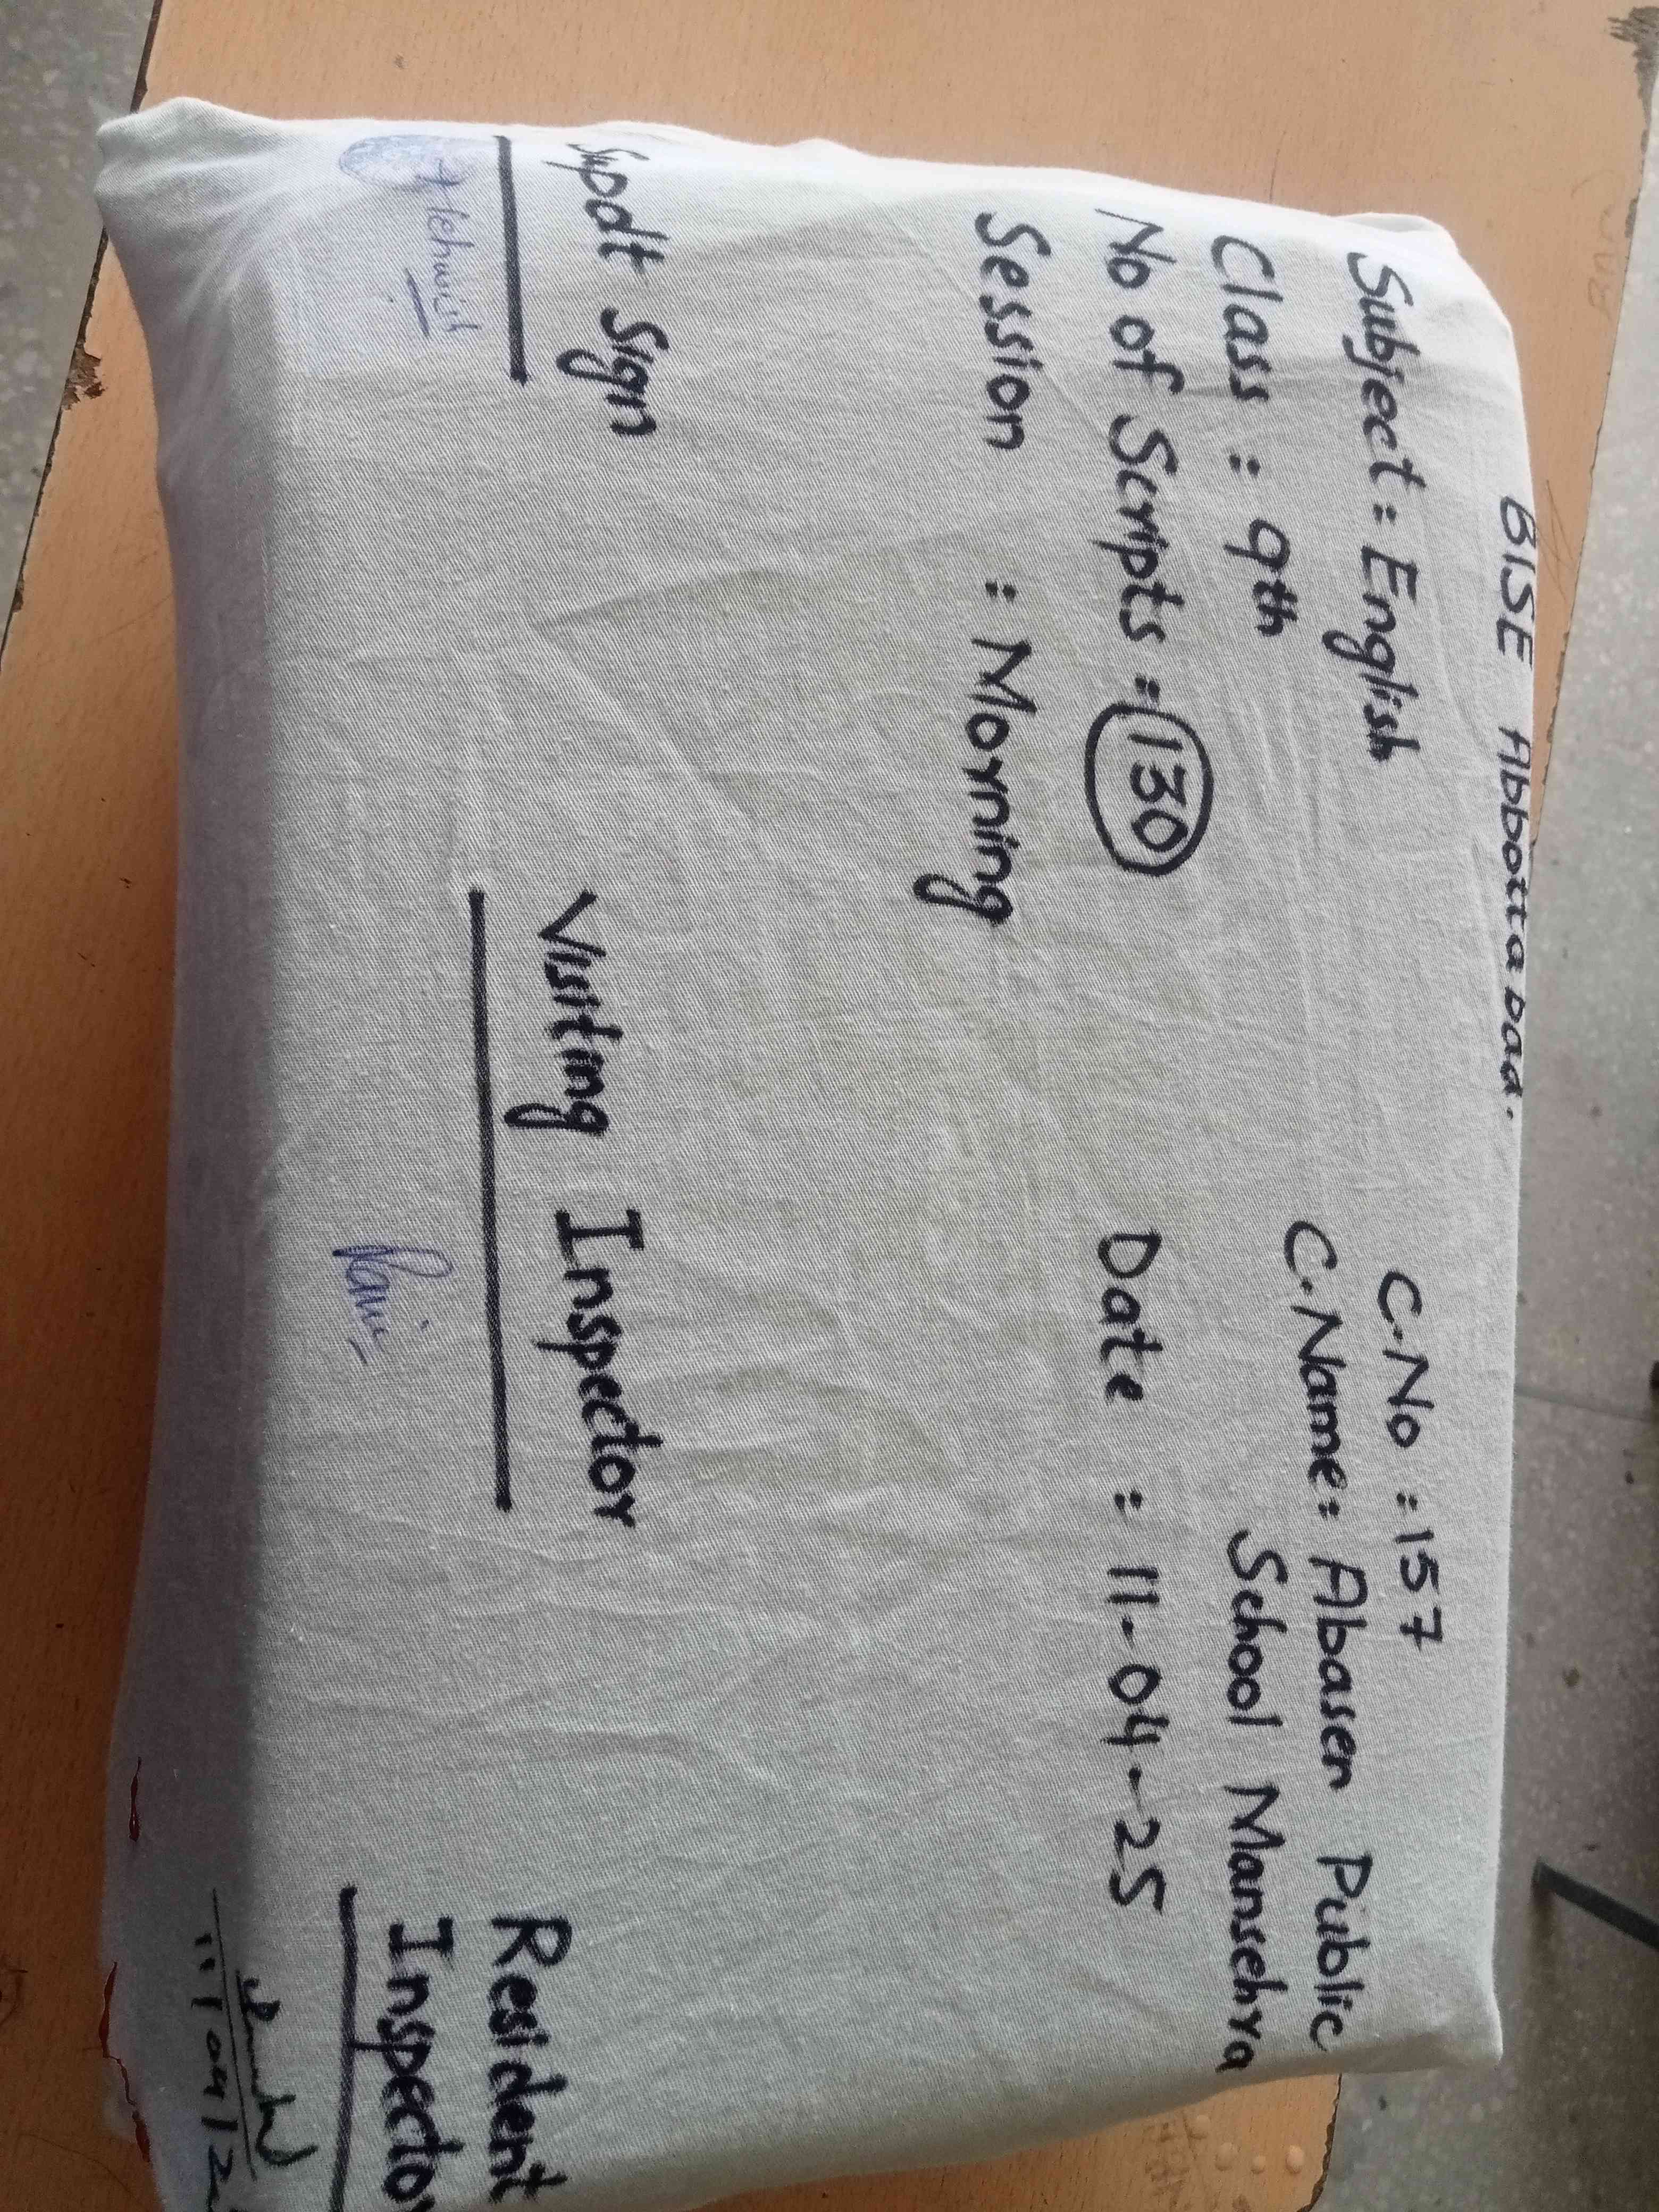 BISE Abbottabad.
C.No = 157
Subject = English
C.Name = Abasen Public
School Mansehra
Class : 9th
No of Scripts = 130
Date = 11-04-25
Session : Morning
Supdt Sign
Visiting Inspector
Resident
Inspector